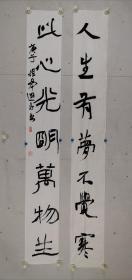 人生有夢不覺寒
此心光明萬物生
庚子